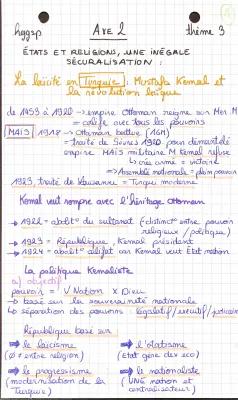 hggsp Axe 2 thème 3
ÉTATS ET RELIGIONS, UNE INÉGALE
SÉCURALISATION :
La laïcité en Turquie : Mustafa Kemal et
la révolution laïque
de 1453 à 1920 → empire Ottoman règne sur Mer M
= calife avec tous les pouvoirs
MAIS 1918 → Ottoman battue (1GM)
= traité de Sèvres 1920 pour démantelé
empire MAIS militaire M. Kemal refuse
↳ crée armé = victoire
⇒ Assemblé nationale = plein pouvoir
1923, traité de Lausanne = Turquie moderne
Kemal veut rompre avec l'héritage Ottoman
→ 1922 = abolit° du sultanat (distinct° entre pouvoir
religieux / politique)
→ 1923 = République, Kemal président
→ 1924 = abolit° califat car Kemal veut État nation
La politique Kemaliste
a) objectif
pouvoir = V Nation x Dieu
↳ basé sur la souveraineté nationale
↳ séparation des pouvoirs : législatif/executif/judiciaire
République basé sur
⇒ le laïcisme
(Ø entre religion)
⇒ l'étatisme
(État gère des eco)
⇒ le progressisme
(modernisation de la
Turquie)
⇒ le nationaliste
(UNE nation et
centralisateur)